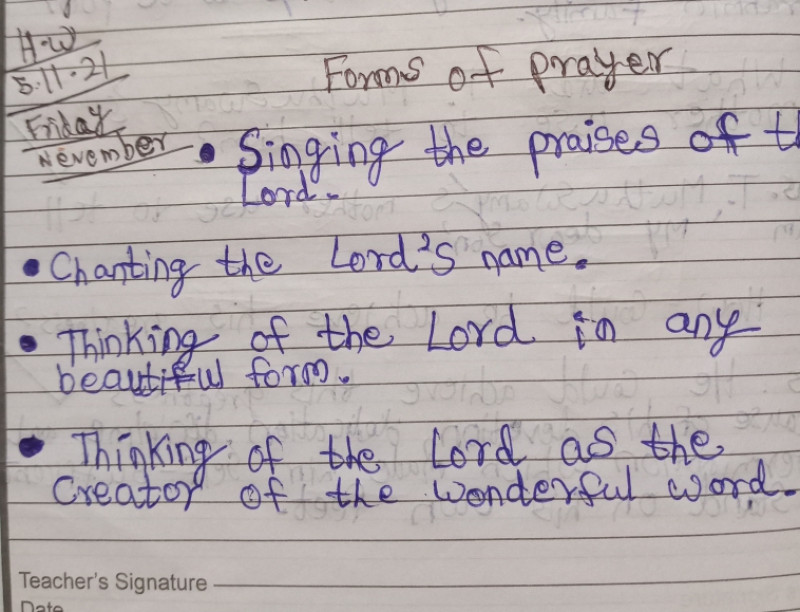 H.W
5.11.21
Friday
November
Forms of prayer
• Singing the praises of t
Lord.
• Chanting the Lord's name.
• Thinking of the Lord in any
beautiful form.
• Thinking of the Lord as the
Creator of the wonderful word.
Teacher's Signature
Date